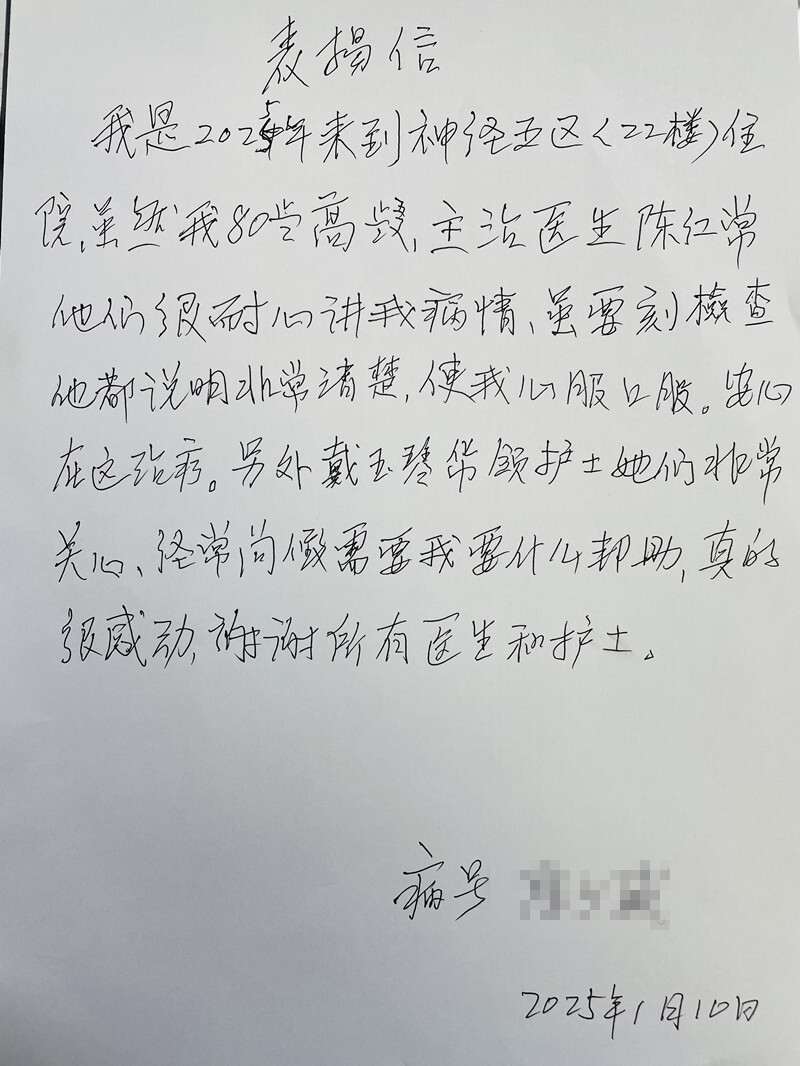 表揚信
我是2025年来到神经五区(22楼)住
院,虽然我80岁高龄,主治医生陈红常
他们很耐心讲我病情、虽要刻檢查
他都说明非常清楚,使我心服口服。安心
在这治疗。另外戴玉琴带领护士她们非常
关心、经常问候需要我要什么帮助,真的
很感动,谢谢所有医生和护士。
病号
2025年1月10日